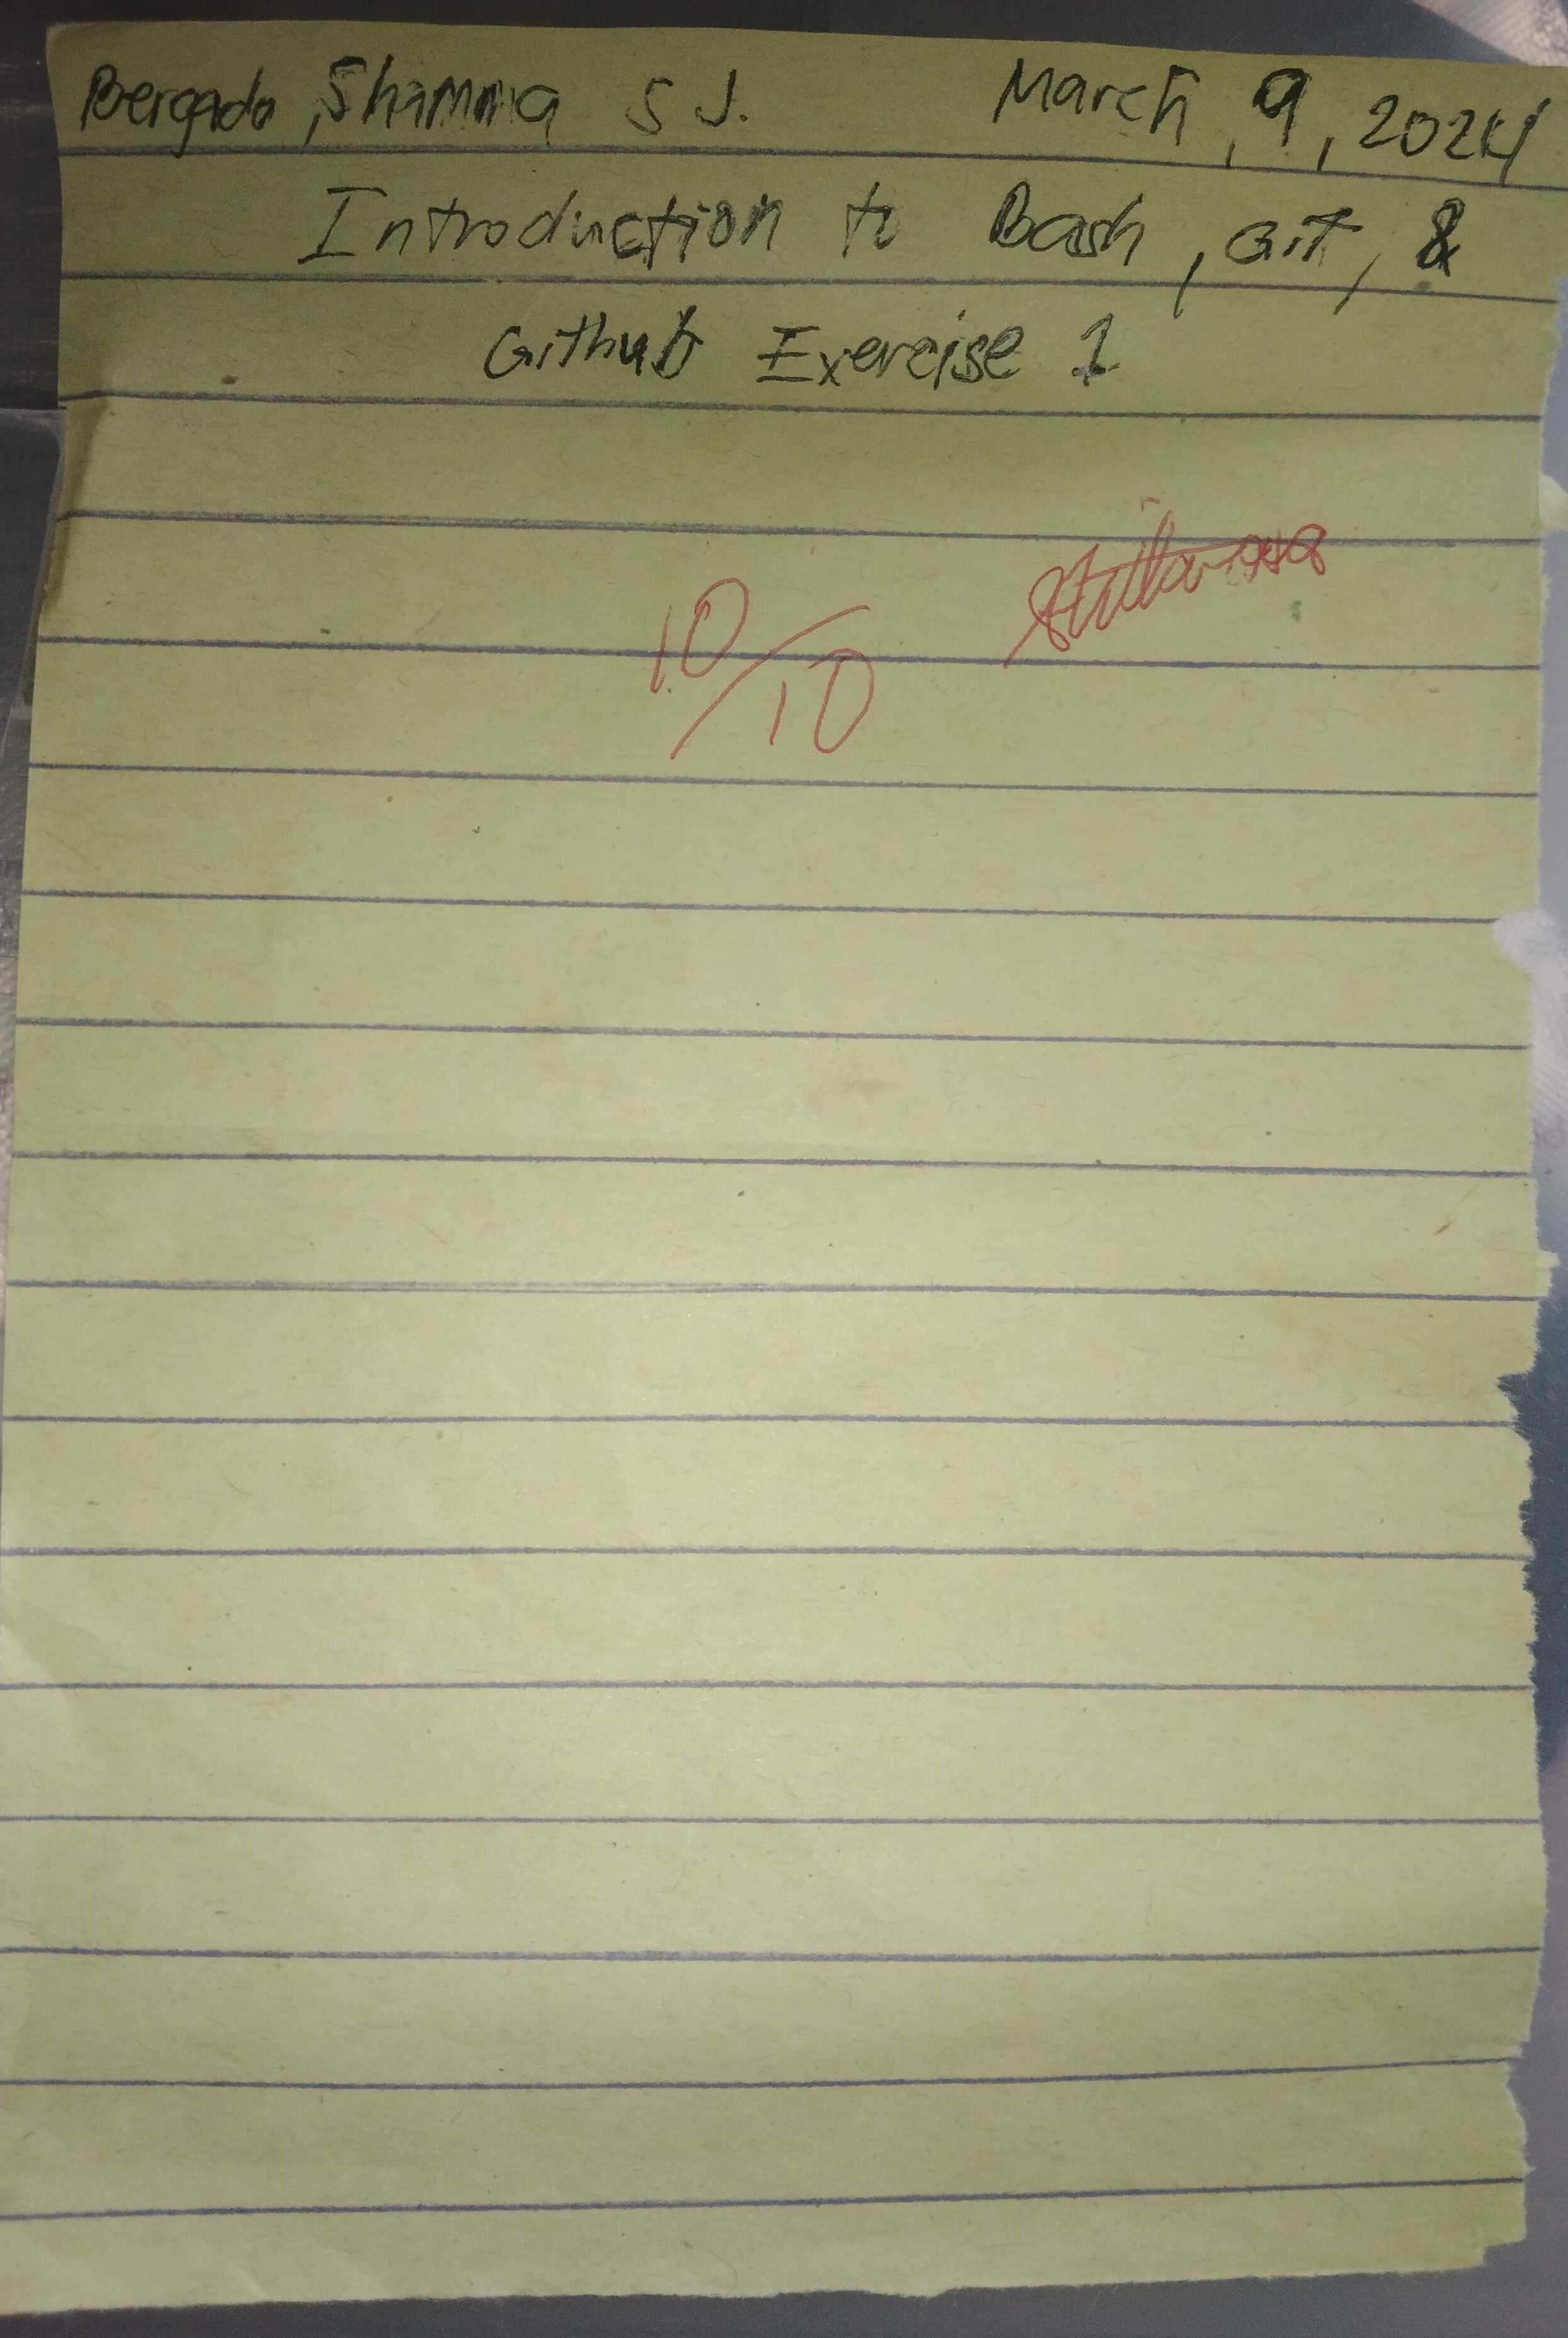 Bergado, Shamma S J. March, 9, 2024
Introduction to Bash, Git, &
Github Exercise 1
10/10